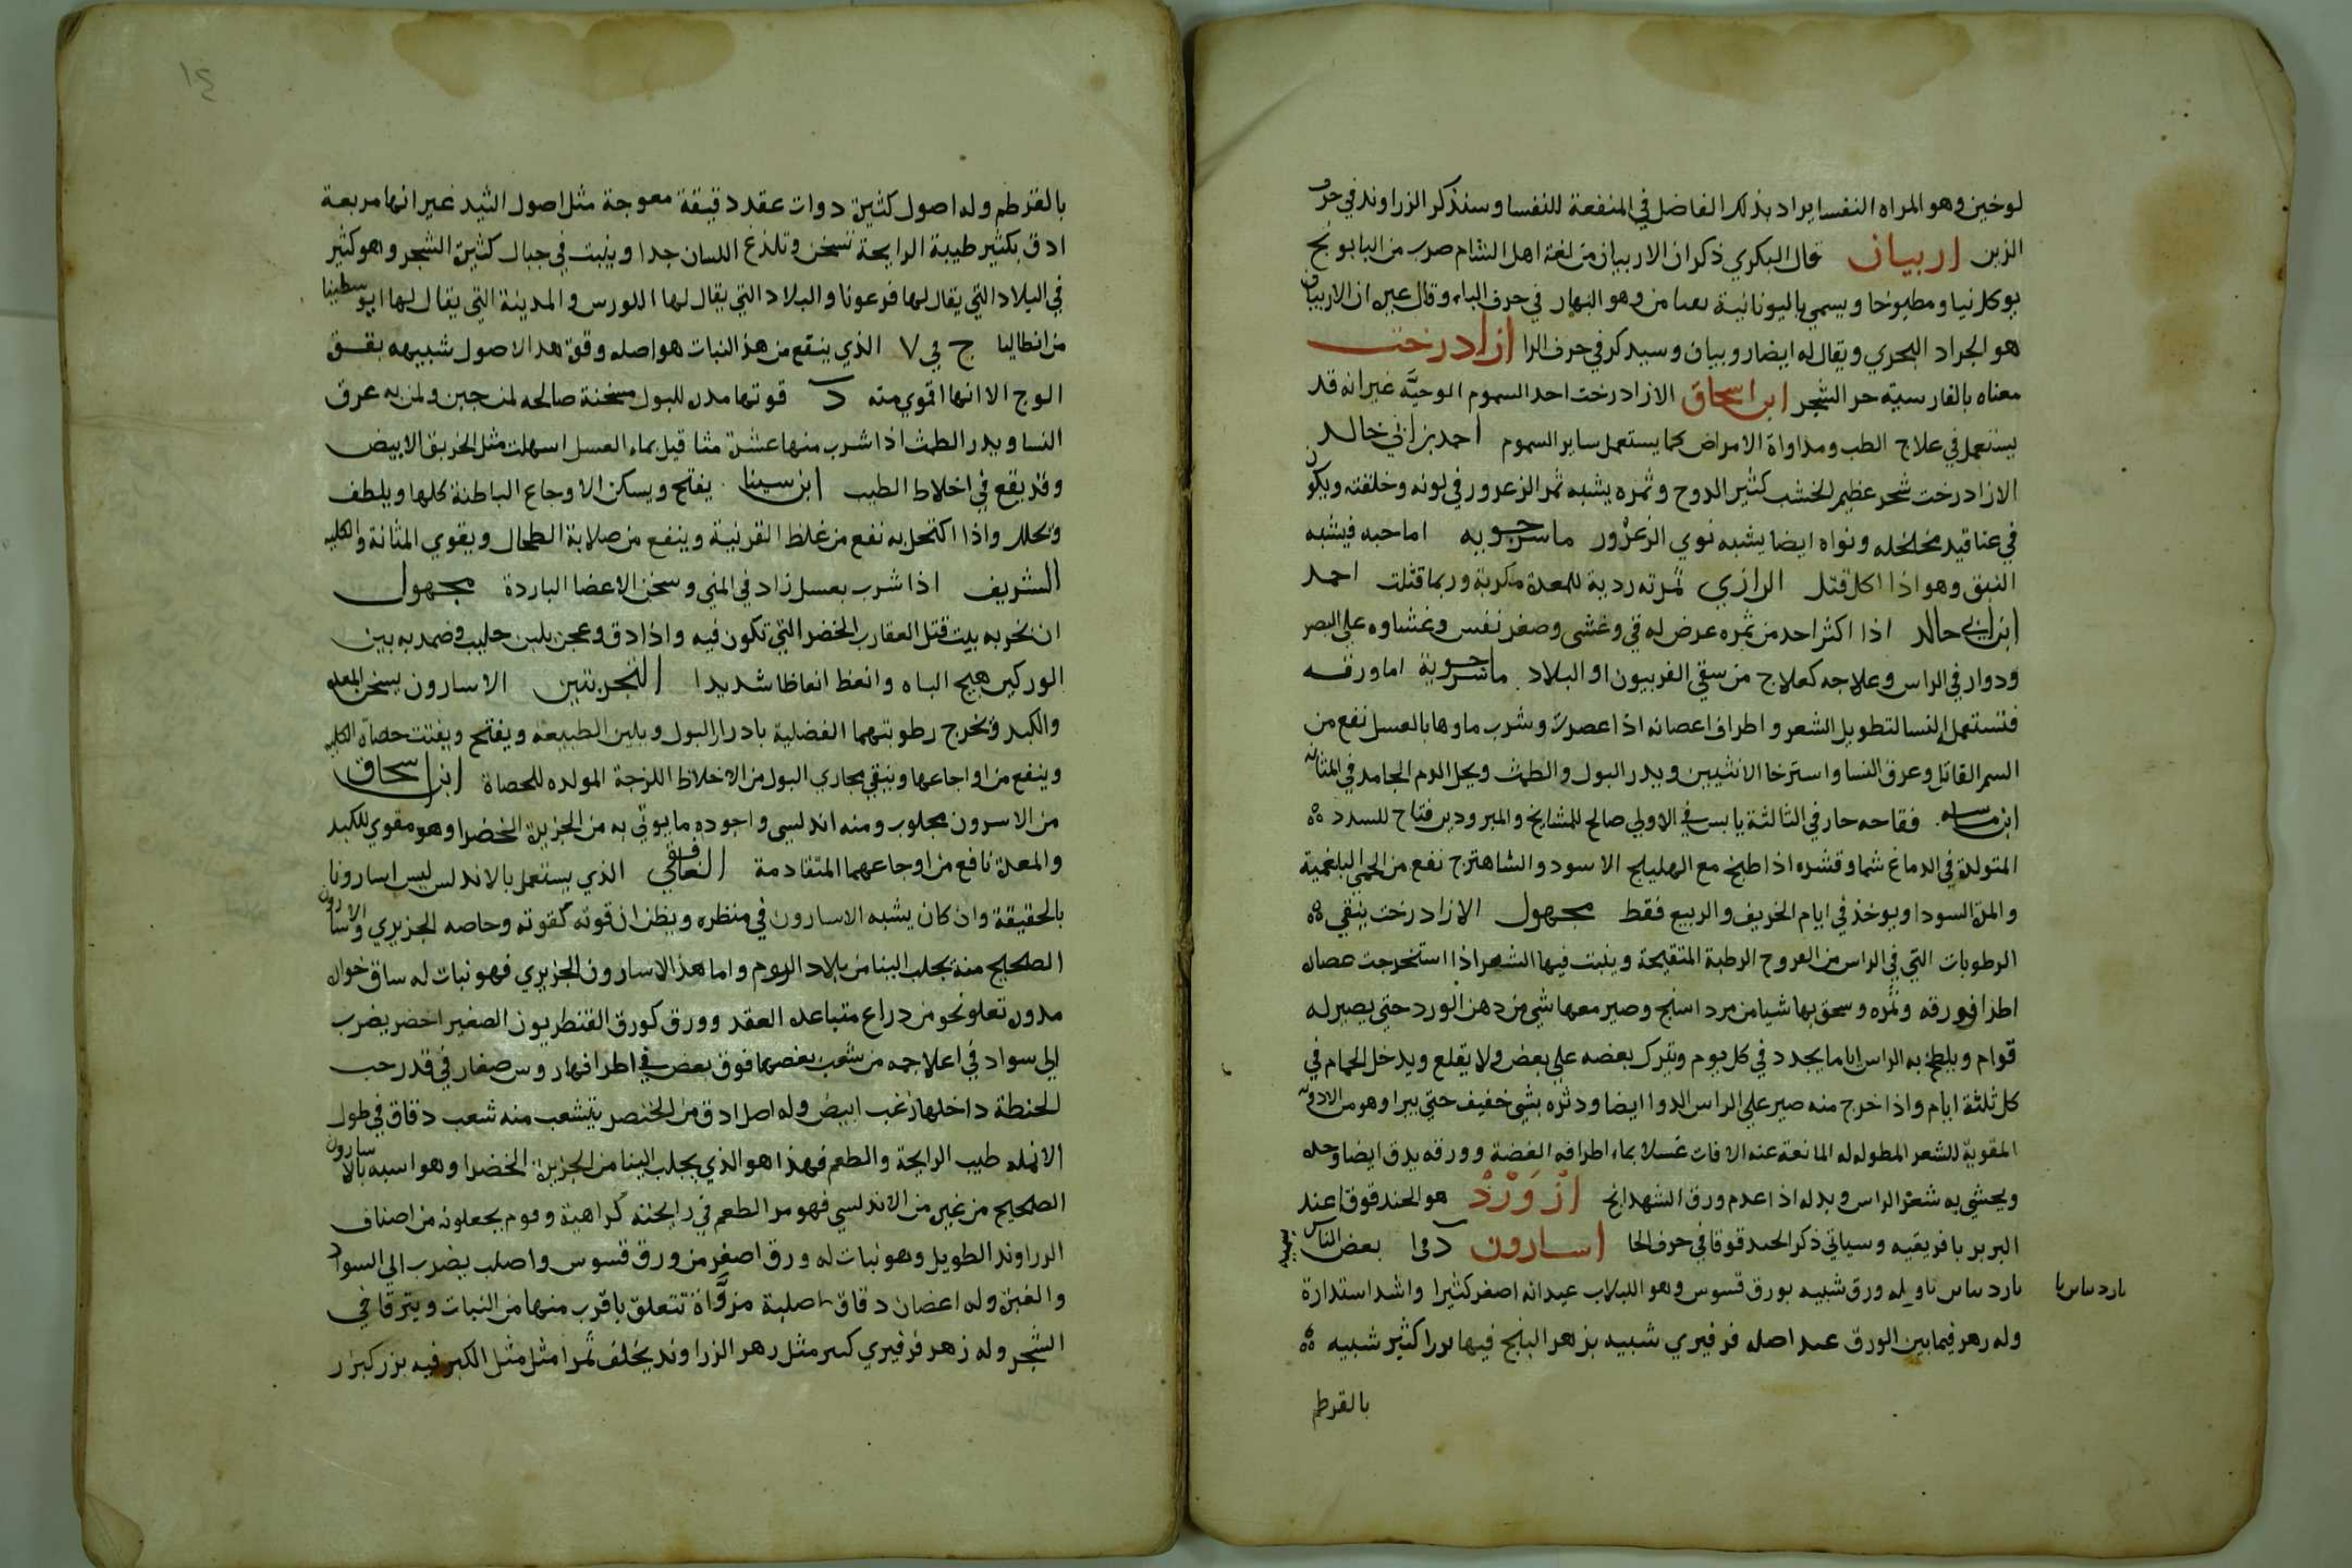 لوخين وهو المراه النفسا يراد بذلك الفاضل في المنفعة للنفسا وسنذكر الزراوند في حرف
الزين اربيان قال البكري ذكر ان الاربيان من لغة اهل الشام ضرب من البابونج
يوكل نيا ومطبوخا ويسمي باليونانية وهو النهار في حرف الباء وقال غيره ان الاربيان
هو الجراد البحري ويقال له ايضا روبيان وسيذكر في حرف الرا ازادرخت
معناه بالفارسية حر الشجر ابن اسحاق الازادرخت احد السموم الوحيَّه غير انه قد
يستعمل في علاج الطب ومداواة الامراض كما يستعمل ساير السموم احمد بن ابي خالد
الازادرخت شجر عظيم الخشب كثير الدوح وثمره يشبه ثمر الزعرور في لونه وخلقته ويكون
في عناقيد مخلخله ونواه ايضا يشبه نوي الزعرور ماسرجويه اما حبه فيشبه
النبق وهو اذا اكل قتل الرازي ثمرته ردية للمعدة مكربة وربما قتلت احمد
ابن ابي خالد اذا اكثر احد من ثمره عرض له قي وغشي وصغر نفس وغشاوه علي البصر
ودوار في الراس وعلاجه كعلاج من سقي الفربيون او البلاد ماسرجوية اما ورقه
فتستعمل النسا لتطويل الشعر واطراف اغصانه اذا عصرت وشرب ماوها بالعسل نفع من
السم القاتل وعرق النسا واسترخا الانثيين ويدر البول والطمث ويحل الدم الجامد في المثانه
ابن ماسه فقاحه حار في الثالثة يابس في الاولي صالح للمشايخ والمبرودين فتاح للسدد
المتولدة في الدماغ شما وقشره اذا طبخ مع الهليلج الاسود والشاهترج نفع من الحمي البلغمية
والمرة السودا ويوخذ في ايام الخريف والربيع فقط مجهول الازادرخت ينقي
الرطوبات التي في الراس من القروح الرطبة المتقيحة وينبت فيها الشعر اذا استخرجت عصاره
اطراف ورقه وثمره وسحق بها شيا من مرداسنج وصير معها شي من دهن الورد حتي يصير له
قوام ويلطخ به الراس اياما يجدد في كل يوم ويترك بعضه علي بعض ولا يقلع ويدخل الحمام في
كل ثلثة ايام واذا خرج منه صير علي الراس الدوا ايضا ودثره بشي خفيف حتي يبرا وهو من الادويه
المقوية للشعر المطوله له المانعة عنه الافات غسلا بماء اطرافه الغضة وورقه يدق ايضا وحده
ويحشي به شعر الراس وبدله اذا عدم ورق الشهدانج ازْوَرْدْ هو الحندقوقا عند
البربر بافريقيه وسياتي ذكر الحندقوقا في حرف الحا اسارون دوا بعض الناس يسميه
ناردين له ورق شبيه بورق قسوس وهو اللبلاب غير انه اصغر كثيرا واشد استدارة
وله زهر فيما بين الورق عند اصله فرفيري شبيه بزهر البنج فيها بزرا كثير شبيه
بالقرطم
١٤
بالقرطم وله اصول كثيرة ذوات عقد دقيقة معوجة مثل اصول الثيد غير انها مربعة
ادق بكثير طيبة الرايحة تسخن وتلذع اللسان جدا وينبت في جبال كثيرة الشجر وهو كثير
في البلاد التي يقال لها فرعونا والبلاد التي يقال لها اللورس والمدينة التي يقال لها ابوسطينا
من انطاليا ج في ٧ الذي ينتفع من هذ النبات هو اصله وقوة هذ الاصول شبيهه بقوة
الوج الا انها اقوي منه د قوتها مدره للبول مسخنة صالحه لمن جبن ولمن به عرق
النسا ويدر الطمث اذا شرب منها عشرة مثاقيل بماء العسل اسهلت مثل الخربق الابيض
وقد يقع في اخلاط الطيب ابن سينا يفتح ويسكن الاوجاع الباطنة كلها ويلطف
ويحلل واذا اكتحل به نفع من غلظ القرنية وينفع من صلابة الطحال ويقوي المثانة والكليه
الشريف اذا شرب بعسل زاد في المني وسخن الاعضا الباردة مجهول
ان بخر به بيت قتل العقارب الخضر التي تكون فيه واذا دق وعجن بلبن حليب وضمد به بين
الوركين هيج الباه وانعظ انعاظا شديدا التجربتين الاسارون يسخن المعده
والكبد ويخرج رطوبتهما الفضلية بادرار البول ويلين الطبيعه ويفتح ويفتت حصاة الكليه
وينفع من اوجاعها وينقي مجاري البول من الاخلاط اللزجة المولده للحصاة ابن اسحاق
من الاسرون مجلوب ومنه اندلسي واجوده ما يوتي به من الجزيرة الخضرا وهو مقوي للكبد
والمعدة نافع من اوجاعهما المتقادمة الغافقي الذي يستعمل بالاندلس ليس اسارونا
بالحقيقة وان كان يشبه الاسارون في منظره ويظن ان قوته كقوته وخاصه الجزيري والاسارون
الصحيح منه يجلب الينا من بلاد الروم واما هذ الاسارون الجزيري فهو نبات له ساق خواره
مدوره تعلو نحو من دراع متباعده العقد وورق كورق القنطريون الصغير اخضر يضرب
الي سواد في اعلا جمه من شعب بعضها فوق بعض في اطرافها روس صغار في قدر حب
الحنطة داخلها زغب ابيض وله اصل ادق من الخنصر يتشعب منه شعب دقاق في طول
الانمله طيب الرايحة والطعم فهذا هو الذي يجلب الينا من الجزيرة الخضرا وهو اشبه بالاسارون
الصحيح من غيره من الاندلسي فهو مر الطعم في رايحته كراهية وقوم يجعلونه من اصناف
الزراوند الطويل وهو نبات له ورق اصغر من ورق قسوس واصلب يضرب الي السواد
والغبرة وله اغصان دقاق صلبة مزوَّاة تتعلق باقرب منها من النبات ويترقا في
الشجر وله زهر فرفيري مثل زهر الزراوند يخلف ثمرا مثل مثل الكبر فيه بزر كبزر